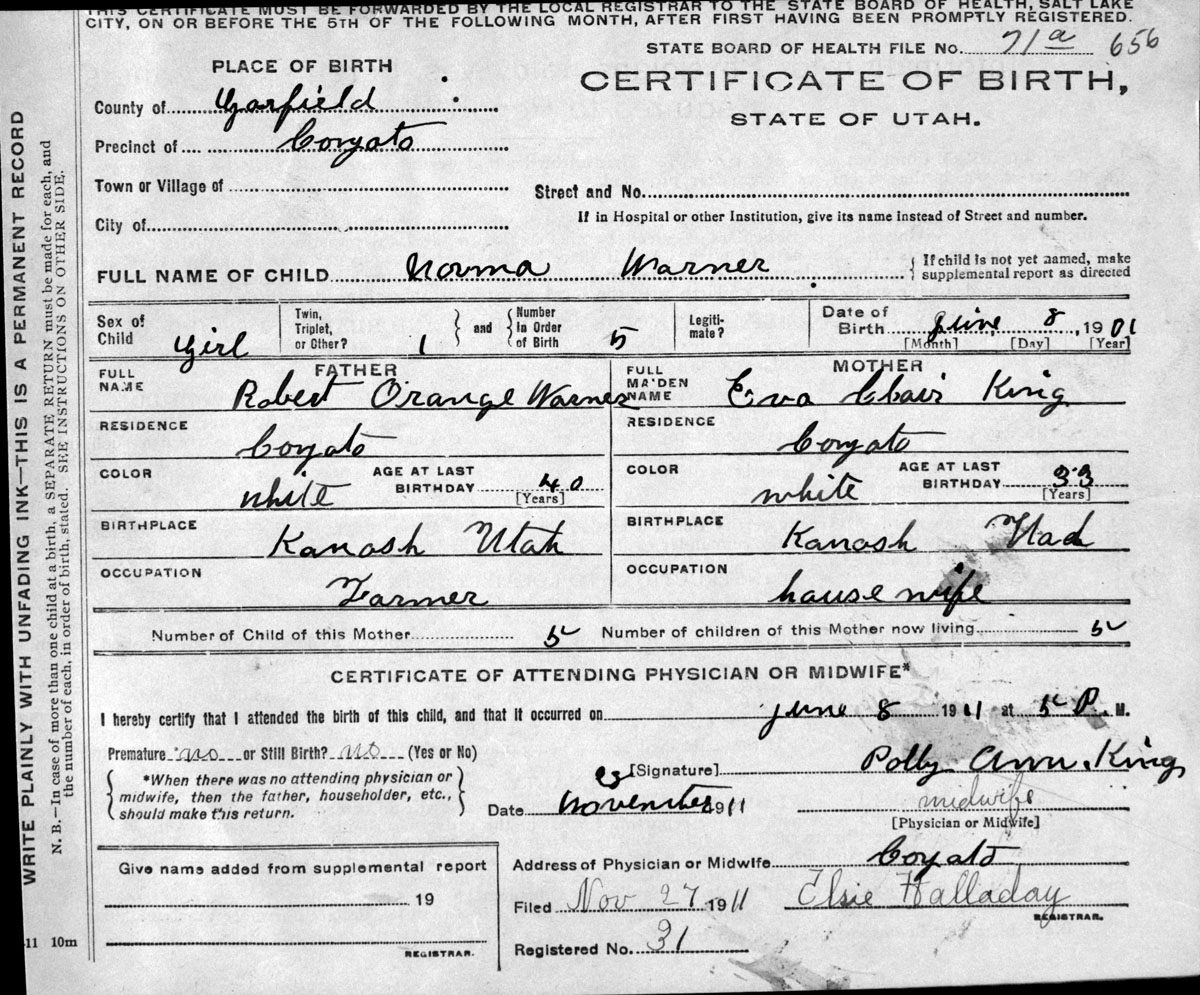 THIS CERTIFICATE MUST BE FORWARDED BY THE LOCAL REGISTRAR TO THE STATE BOARD OF HEALTH, SALT LAKE
CITY, ON OR BEFORE THE 5TH OF THE FOLLOWING MONTH, AFTER FIRST HAVING BEEN PROMPTLY REGISTERED.
STATE BOARD OF HEALTH FILE No. 71a 656
PLACE OF BIRTH
CERTIFICATE OF BIRTH,
STATE OF UTAH.
County of Garfield
Precinct of Coyato
Town or Village of
Street and No.
City of
If in Hospital or other Institution, give its name instead of Street and number.
FULL NAME OF CHILD Norma Warner
If child is not yet named, make supplemental report as directed
Sex of Child Girl
Twin, Triplet, or Other? 1
and
Number in Order of Birth 5
Legiti-mate?
Date of Birth June 8, 1901
[Month] [Day] [Year]
FATHER
FULL NAME Robert Orange Warner
MOTHER
FULL MAIDEN NAME Eva Clair King
RESIDENCE Coyato
RESIDENCE Coyato
COLOR white AGE AT LAST BIRTHDAY 40 [Years]
COLOR white AGE AT LAST BIRTHDAY 33 [Years]
BIRTHPLACE Kanosh Utah
BIRTHPLACE Kanosh Utad
OCCUPATION Farmer
OCCUPATION hause wife
Number of Child of this Mother 5 Number of children of this Mother now living 5
CERTIFICATE OF ATTENDING PHYSICIAN OR MIDWIFE*
I hereby certify that I attended the birth of this child, and that it occurred on June 8 1911 at 5 P. M.
Premature no or Still Birth? no (Yes or No)
*When there was no attending physician or midwife, then the father, householder, etc., should make this return.
[Signature] Polly Ann King
Date November 1911
midwife
[Physician or Midwife]
Address of Physician or Midwife Coyato
Give name added from supplemental report
19
REGISTRAR.
Filed Nov 27 1911 Elsie Halladay
REGISTRAR.
Registered No. 31
11 10m
WRITE PLAINLY WITH UNFADING INK—THIS IS A PERMANENT RECORD
N. B.—In case of more than one child at a birth, a SEPARATE RETURN must be made for each, and
the number of each, in order of birth, stated. SEE INSTRUCTIONS ON OTHER SIDE.